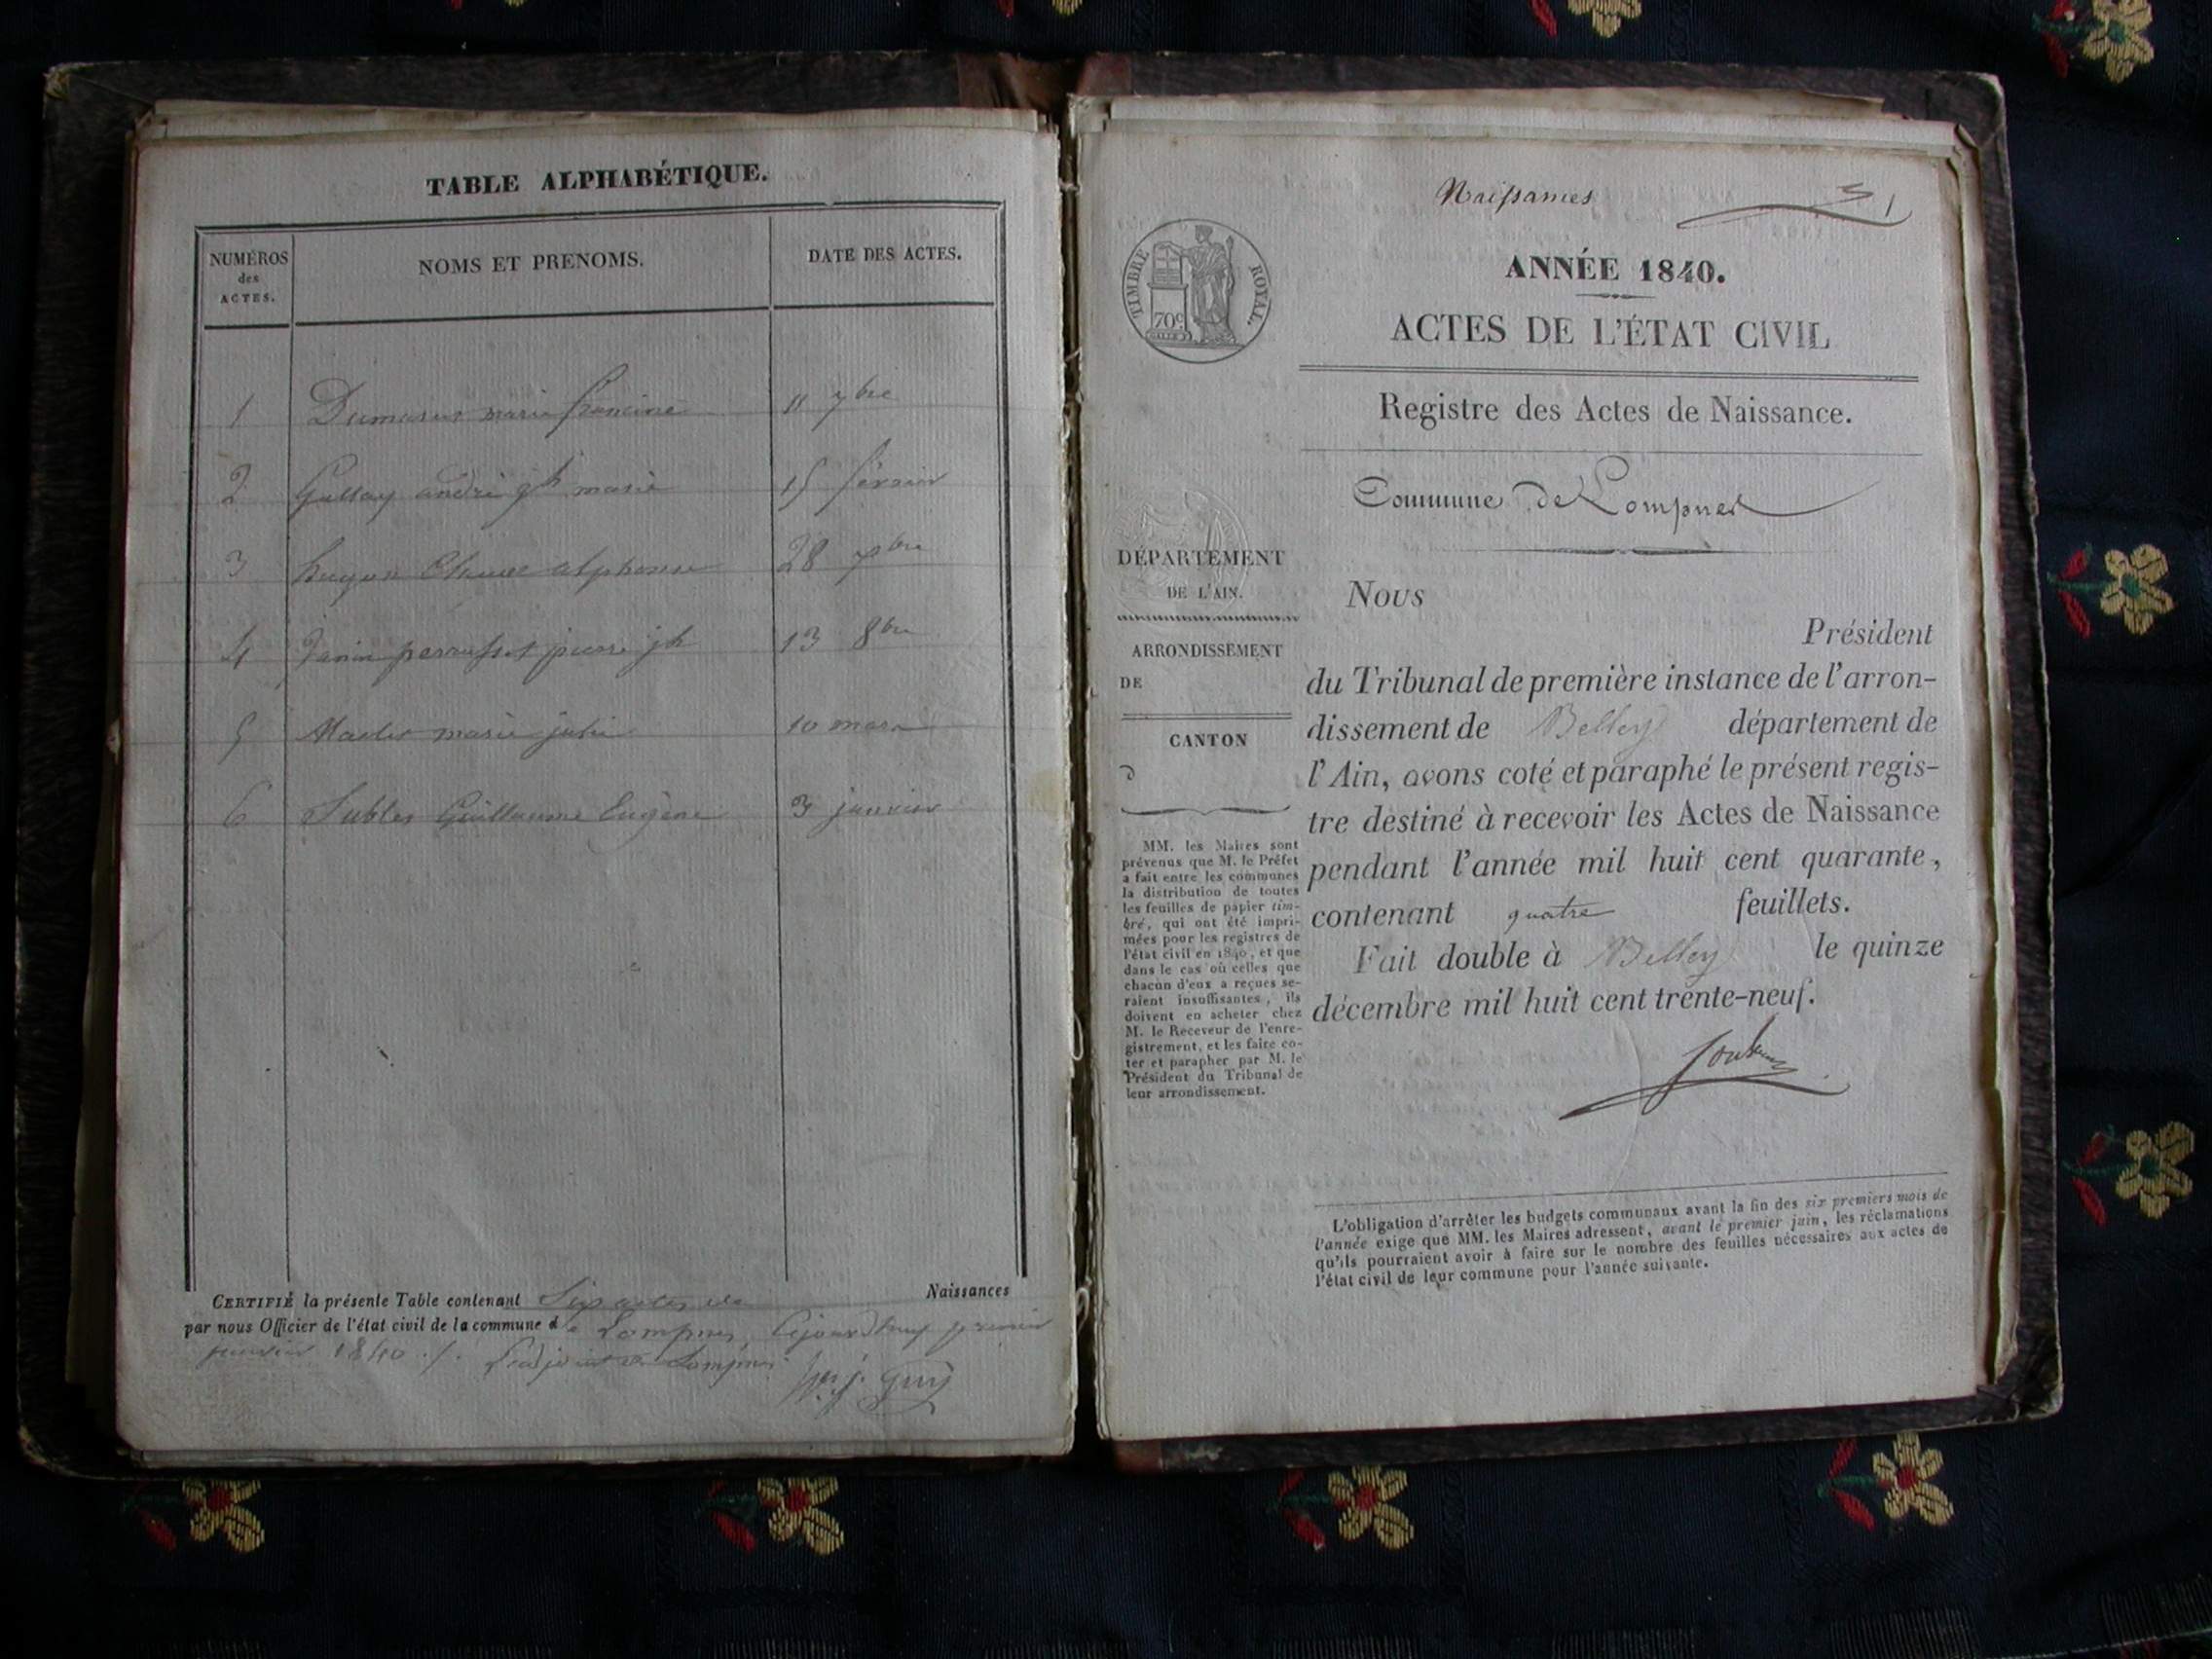 TABLE ALPHABÉTIQUE.
NUMÉROS
des
ACTES.
NOMS ET PRENOMS.
DATE DES ACTES.
1 marie francine 11 7bre
2 Gallay andré jh marie 15 février
3 alphonse 28 7bre
4 Janin pierre jh 13 8bre
5 marie julie 10 mars
6 Guillaume Eugène 3 janvier
CERTIFIÉ la présente Table contenant Six actes de Naissances
par nous Officier de l'état civil de la commune de Lompnes, cejourd'huy premier
janvier 1840 ./. L'adjoint de Lompnes
Guy
Naissances
1
TIMBRE ROYAL.
70c
ANNÉE 1840.
ACTES DE L'ÉTAT CIVIL
Registre des Actes de Naissance.
Commune de Lompnes
DÉPARTEMENT
DE L'AIN.
ARRONDISSEMENT
DE
CANTON
D
MM. les Maires sont
prévenus que M. le Préfet
a fait entre les communes
la distribution de toutes
les feuilles de papier tim-
bré, qui ont été impri-
mées pour les registres de
l'état civil en 1840, et que
dans le cas où celles que
chacun d'eux a reçues se-
raient insuffisantes, ils
doivent en acheter chez
M. le Receveur de l'enre-
gistrement, et les faire co-
ter et parapher par M. le
Président du Tribunal de
leur arrondissement.
Nous
Président
du Tribunal de première instance de l'arron-
dissement de Belley département de
l'Ain, avons coté et paraphé le présent regis-
tre destiné à recevoir les Actes de Naissance
pendant l'année mil huit cent quarante,
contenant quatre feuillets.
Fait double à Belley le quinze
décembre mil huit cent trente-neuf.
L'obligation d'arrêter les budgets communaux avant la fin des six premiers mois de
l'année exige que MM. les Maires adressent, avant le premier juin, les réclamations
qu'ils pourraient avoir à faire sur le nombre des feuilles nécessaires aux actes de
l'état civil de leur commune pour l'année suivante.